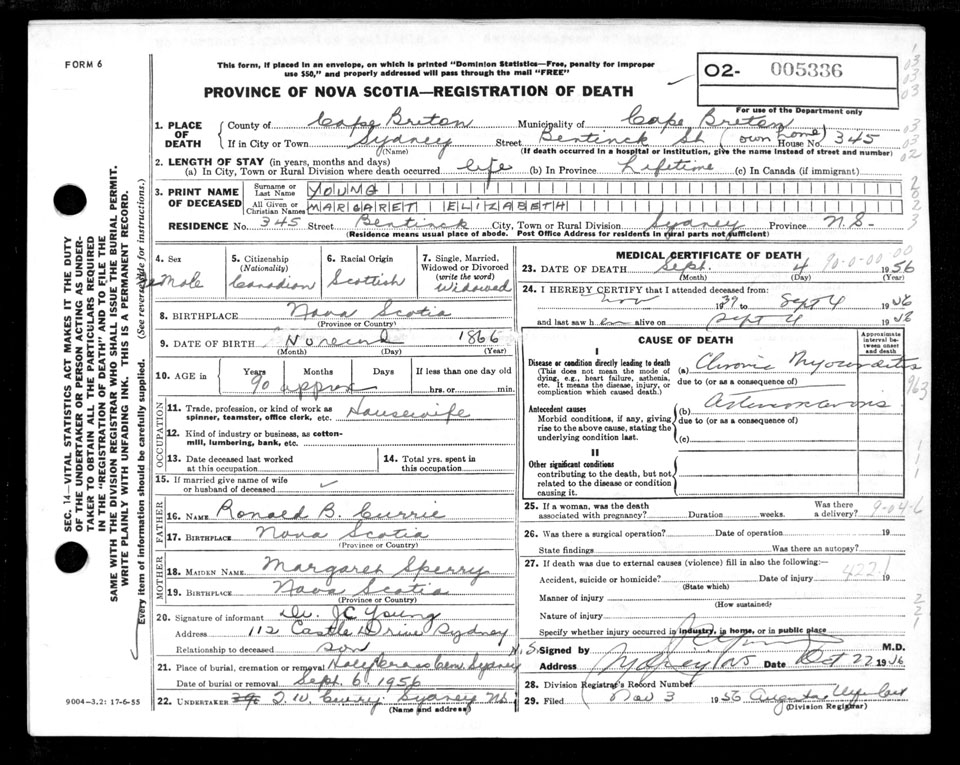 FORM 6
This form, if placed in an envelope, on which is printed "Dominion Statistics—Free, penalty for improper
use $50," and properly addressed will pass through the mail "FREE"
PROVINCE OF NOVA SCOTIA—REGISTRATION OF DEATH
O2- 005336
For use of the Department only
1. PLACE OF DEATH
County of Cape Breton Municipality of Cape Breton
If in City or Town Sydney Street Bentinck St (own home) House No. 345
(Name) (If death occurred in a hospital or institution, give the name instead of street and number)
2. LENGTH OF STAY (in years, months and days)
(a) In City, Town or Rural Division where death occurred life (b) In Province Lifetime (c) In Canada (if immigrant)
3. PRINT NAME OF DECEASED
Surname or Last Name YOUNG
All Given or Christian Names MARGARET ELIZABETH
RESIDENCE No. 345 Street Bentinck City, Town or Rural Division Sydney Province N.S-
(Residence means usual place of abode. Post Office Address for residents in rural parts not sufficient)
4. Sex
Female
5. Citizenship (Nationality)
Canadian
6. Racial Origin
Scottish
7. Single, Married, Widowed or Divorced (write the word)
Widowed
8. BIRTHPLACE Nova Scotia
(Province or Country)
9. DATE OF BIRTH 1866
(Month) (Day) (Year)
10. AGE in Years Months Days If less than one day old
90 approx hrs. or min.
OCCUPATION
11. Trade, profession, or kind of work as spinner, teamster, office clerk, etc. Housewife
12. Kind of industry or business, as cotton-mill, lumbering, bank, etc.
13. Date deceased last worked at this occupation
14. Total yrs. spent in this occupation
15. If married give name of wife or husband of deceased ✓
FATHER
16. NAME Ronald B. Currie
17. BIRTHPLACE Nova Scotia
(Province or Country)
MOTHER
18. MAIDEN NAME Margaret Sperry
19. BIRTHPLACE Nova Scotia
(Province or Country)
20. Signature of informant Dr. JC Young
Address 112 Castle Drive Sydney N.S.
Relationship to deceased son
21. Place of burial, cremation or removal Holy Cross Cem. Sydney
Date of burial or removal Sept. 6 1956
22. UNDERTAKER T. W. Curry Sydney NS.
(Name and address)
MEDICAL CERTIFICATE OF DEATH
23. DATE OF DEATH Sept. 4 1956
90-0-00 00
(Month) (Day)
24. I HEREBY CERTIFY that I attended deceased from:
Nov 1937 to Sept 4 1956
and last saw her alive on Sept 4 1956
CAUSE OF DEATH
Approximate interval between onset and death
I
Disease or condition directly leading to death
(This does not mean the mode of dying, e.g., heart failure, asthenia, etc. It means the disease, injury, or complication which caused death.)
(a) Chronic Myocarditis
due to (or as a consequence of)
Antecedent causes
Morbid conditions, if any, giving rise to the above cause, stating the underlying condition last.
(b)
due to (or as a consequence of)
(c)
II
Other significant conditions
contributing to the death, but not related to the disease or condition causing it.
25. If a woman, was the death associated with pregnancy? Duration weeks. Was there a delivery?
9-04-6
26. Was there a surgical operation? Date of operation 19
State findings Was there an autopsy?
27. If death was due to external causes (violence) fill in also the following:—
422.1
Accident, suicide or homicide? Date of injury 19
(State which)
Manner of injury
(How sustained)
Nature of injury
Specify whether injury occurred in industry, in home, or in public place
Signed by M.D.
Address Date Oct 22 1956
28. Division Registrar's Record Number
29. Filed Nov 3 1956
(Division Registrar)
SEC. 14—VITAL STATISTICS ACT MAKES IT THE DUTY
OF THE UNDERTAKER OR PERSON ACTING AS UNDER-
TAKER TO OBTAIN ALL THE PARTICULARS REQUIRED
IN THE "REGISTRATION OF DEATH" AND TO FILE THE
SAME WITH THE DIVISION REGISTRAR WHO SHALL ISSUE THE BURIAL PERMIT.
WRITE PLAINLY WITH UNFADING INK. THIS IS A PERMANENT RECORD.
Every item of information should be carefully supplied. (See reverse side for instructions.)
9004-3.2: 17-6-55